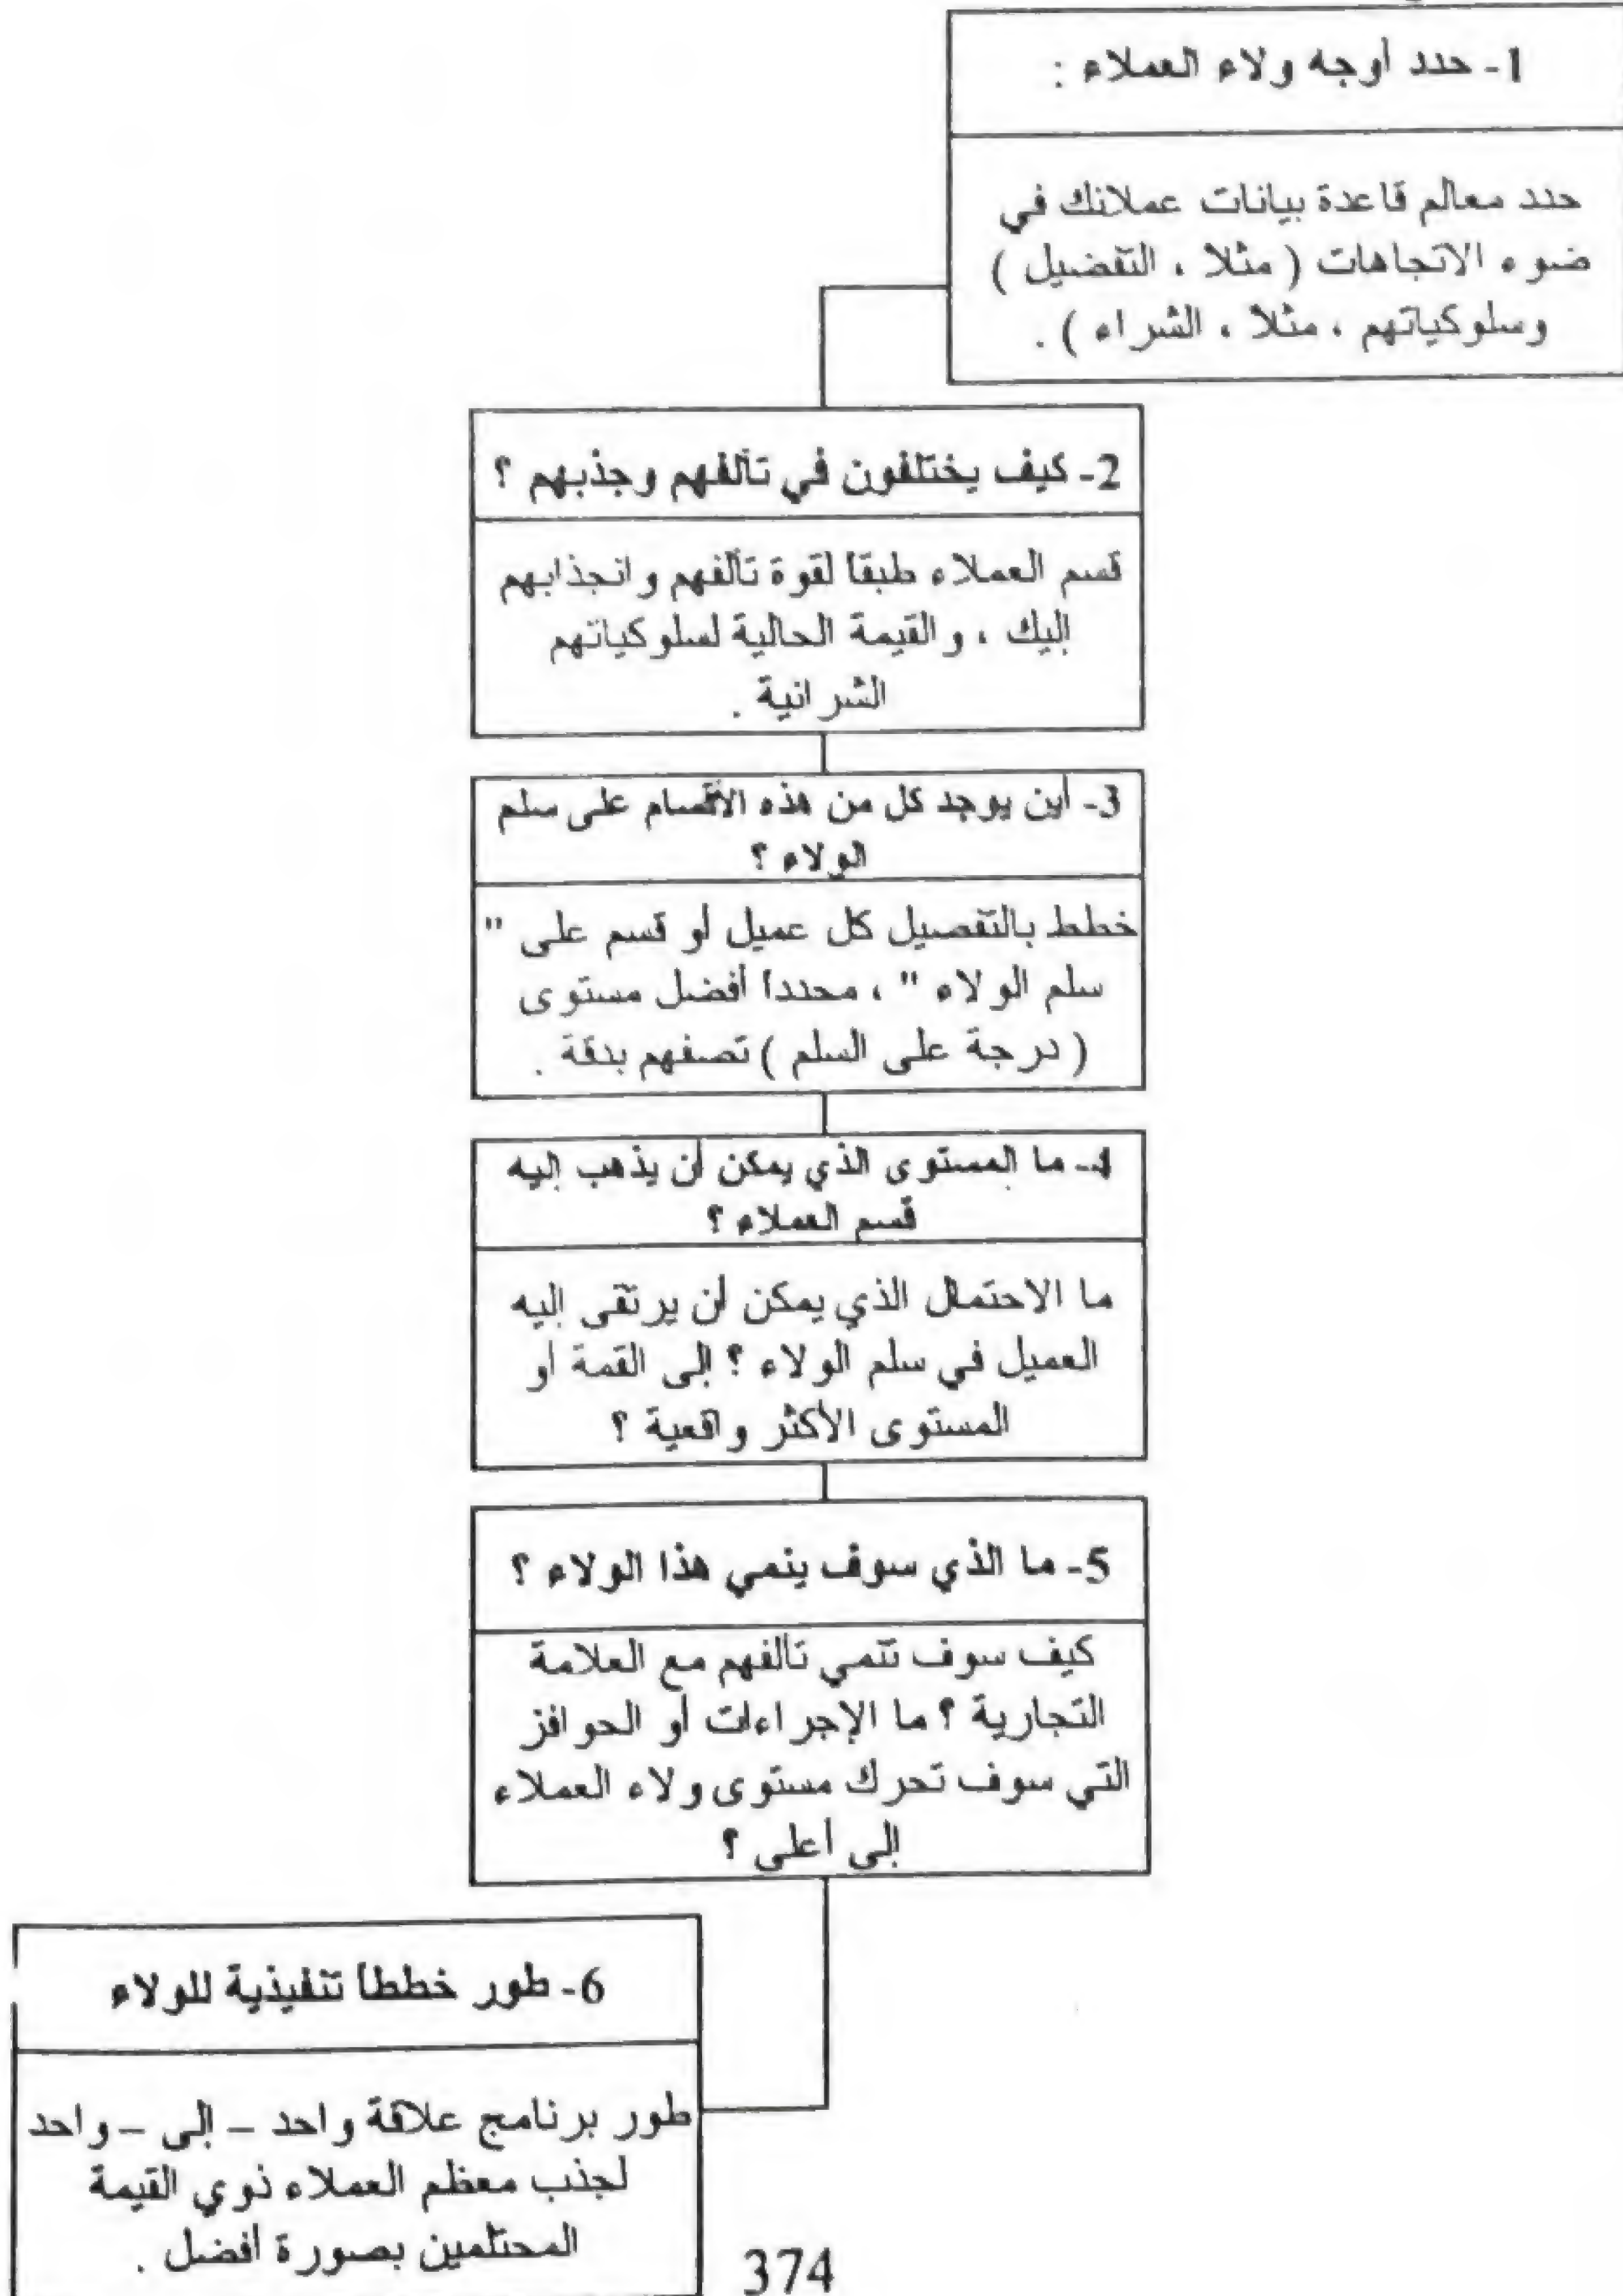 1- حدد أوجه ولاء العملاء :
حدد معالم قاعدة بيانات عملائك في
ضوء الاتجاهات ( مثلا ، التفضيل )
وسلوكياتهم ، مثلا ، الشراء ) .
2- كيف يختلفون في تآلفهم وجذبهم ؟
قسم العملاء طبقا لقوة تآلفهم وانجذابهم
إليك ، والقيمة الحالية لسلوكياتهم
الشرائية .
3- أين يوجد كل من هذه الأقسام على سلم
الولاء ؟
خطط بالتفصيل كل عميل أو قسم على "
سلم الولاء " ، محددا أفضل مستوى
( درجة على السلم ) تصفهم بدقة .
4- ما المستوى الذي يمكن أن يذهب إليه
قسم العملاء ؟
ما الاحتمال الذي يمكن أن يرتقى إليه
العميل في سلم الولاء ؟ إلى القمة أو
المستوى الأكثر واقعية ؟
5- ما الذي سوف ينمي هذا الولاء ؟
كيف سوف تنمي تآلفهم مع العلامة
التجارية ؟ ما الإجراءات أو الحوافز
التي سوف تحرك مستوى ولاء العملاء
إلى أعلى ؟
6- طور خططا تنفيذية للولاء
طور برنامج علاقة واحد – إلى – واحد
لجذب معظم العملاء ذوي القيمة
المحتلمين بصورة أفضل .
374